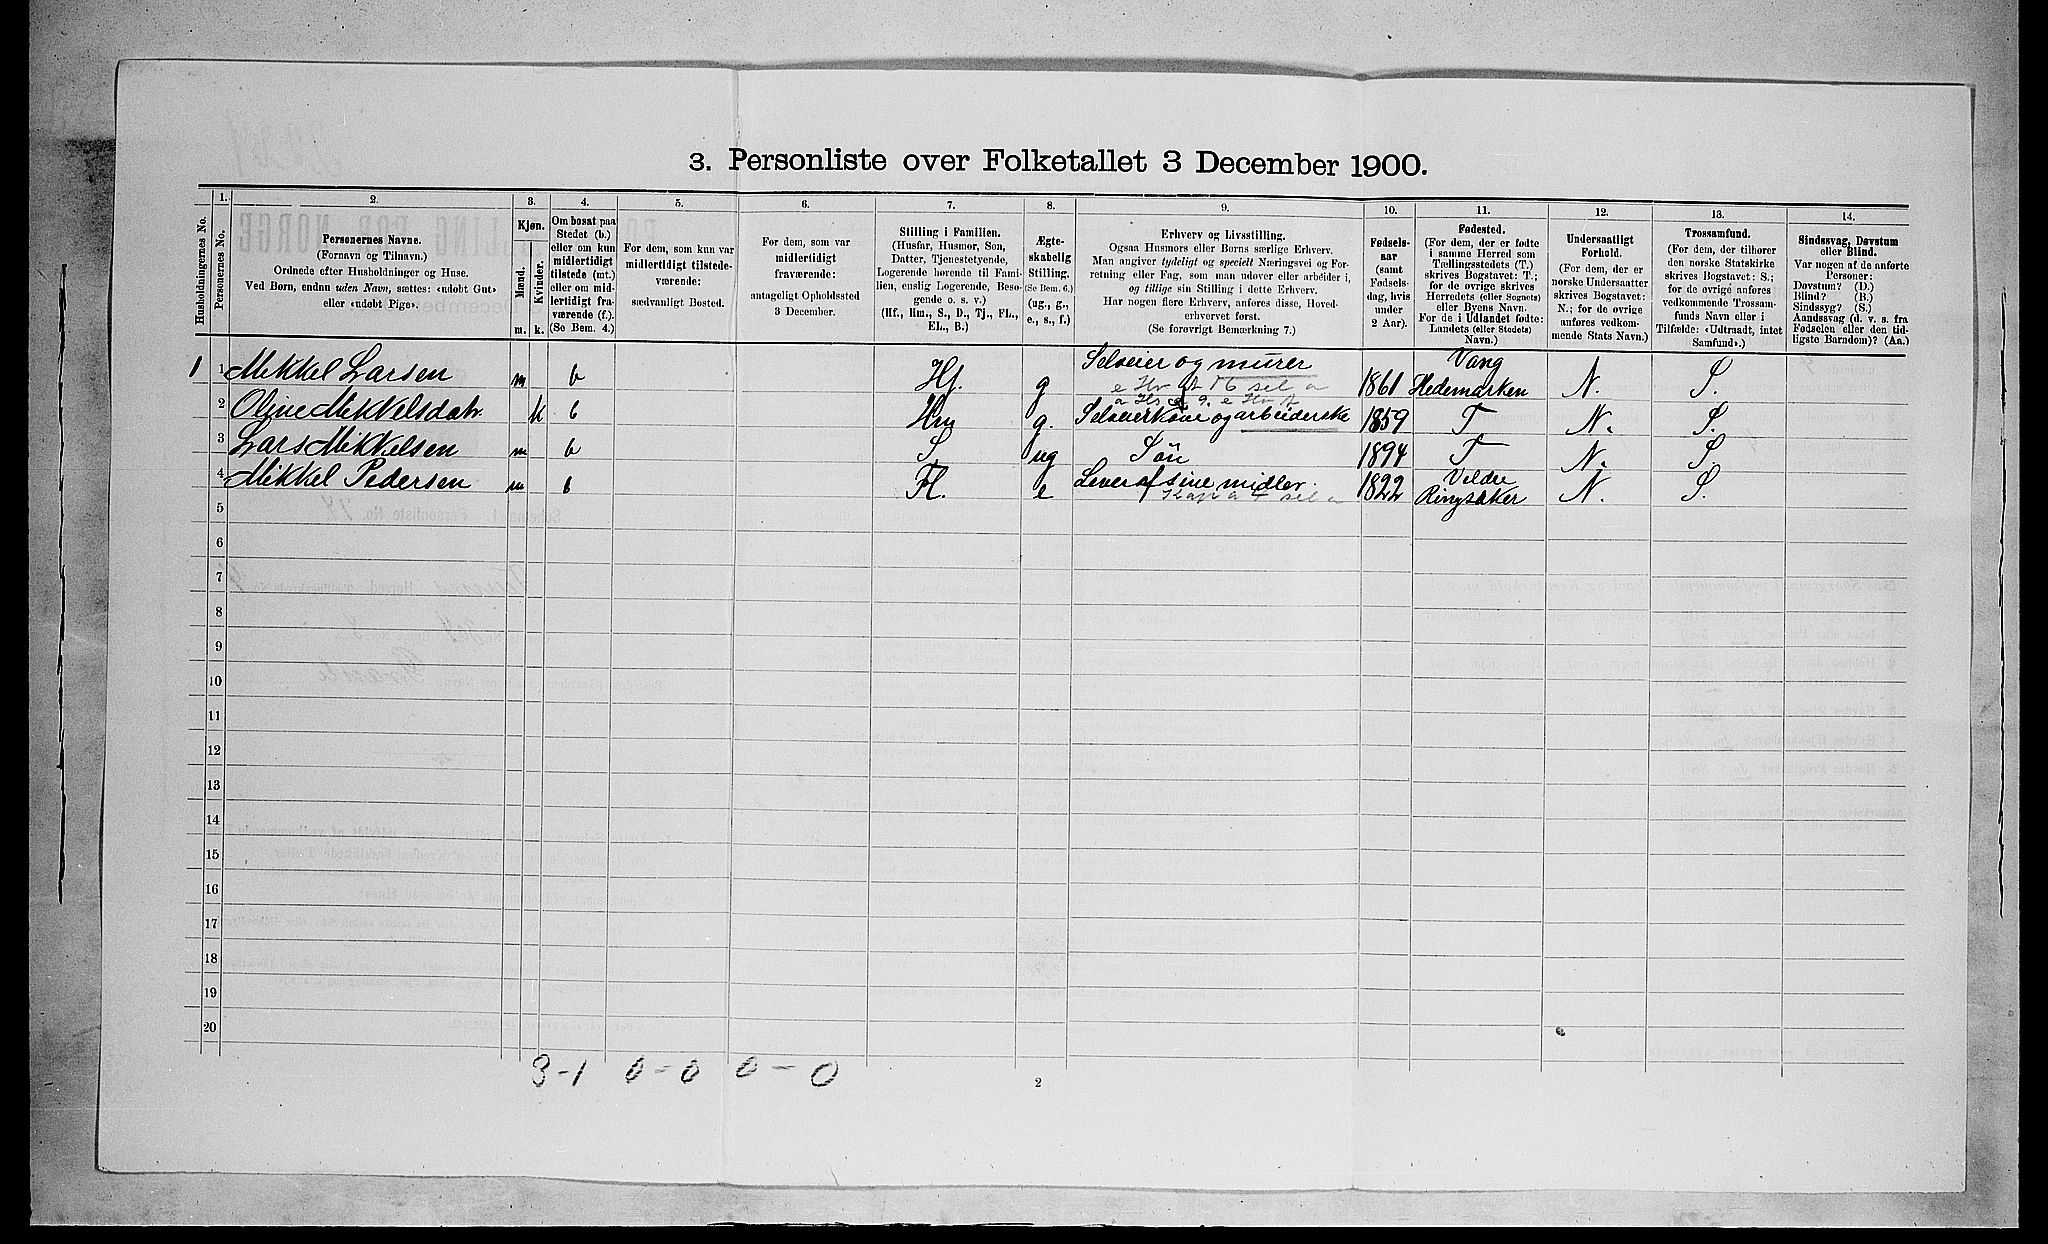 3. Personliste over Folketallet 3 December 1900.
1. 2. 3. 4. 5. 6. 7. 8. 9. 10. 11. 12. 13. 14.
Husholdningernes No.
Personernes No.
Personernes Navne.
(Fornavn og Tilnavn.)
Ordnede efter Husholdninger og Huse.
Ved Børn, endnu uden Navn, sættes: «udøbt Gut»
eller «udøbt Pige».
Kjøn.
Mænd.
Kvinder.
m. k.
Om bosat paa
Stedet (b.)
eller om kun
midlertidigt
tilstede (mt.)
eller om mid-
lertidigt fra-
værende (f.).
(Se Bem. 4.)
For dem, som kun var
midlertidigt tilstede-
værende:
sædvanligt Bosted.
For dem, som var
midlertidigt
fraværende:
antageligt Opholdssted
3 December.
Stilling i Familien.
(Husfar, Husmor, Søn,
Datter, Tjenestetyende,
Logerende hørende til Fami-
lien, enslig Logerende, Besø-
gende o. s. v.)
(Hf., Hm., S., D., Tj., FL.,
EL., B.)
Ægte-
skabelig
Stilling.
(Se Bem. 6.)
(ug., g.,
e., s., f.)
Erhverv og Livsstilling.
Ogsaa Husmors eller Børns særlige Erhverv.
Man angiver tydeligt og specielt Næringsvei og For-
retning eller Fag, som man udøver eller arbeider i,
og tillige sin Stilling i dette Erhverv.
Har nogen flere Erhverv, anføres disse, Hoved-
erhvervet først.
(Se forøvrigt Bemærkning 7.)
Fødsels-
aar
(samt
Fødsels-
dag, hvis
under
2 Aar).
Fødested.
(For dem, der er fødte
i samme Herred som
Tællingsstedets (T.)
skrives Bogstavet: T.;
for de øvrige skrives
Herredets (eller Sognets)
eller Byens Navn.
For de i Udlandet fødte:
Landets (eller Stedets)
Navn.)
Undersaatligt
Forhold.
(For dem, der er
norske Undersaatter
skrives Bogstavet:
N.; for de øvrige
anføres vedkom-
mende Stats Navn.)
Trossamfund.
(For dem, der tilhører
den norske Statskirke
skrives Bogstavet: S.;
for de øvrige anføres
vedkommende Trossam-
funds Navn eller i
Tilfælde: «Udtraadt, intet
Samfund».)
Sindssvag, Døvstum
eller Blind.
Var nogen af de anførte
Personer:
Døvstum? (D.)
Blind? (B.)
Sindssyg? (S.)
Aandssvag (d. v. s. fra
Fødselen eller den tid-
ligste Barndom)? (Aa.)
1 1 Mikkel Larsen m b Hf. g Selveier og murer 1861 Vang Hedemarken N. S.
2 Oline Mikkelsdatr k b Hm g. Selveierkone og arbeiderske 1859 T N. S.
3 Lars Mikkelsen m b S ug Søn 1894 T N. S.
4 Mikkel Pedersen m b Fl. e Lever af sine midler 1822 Veldre Ringsaker N. S.
5
6
7
8
9
10
11
12
13
14
15
16
17
18
19
20
3-1 0-0 0-0
2